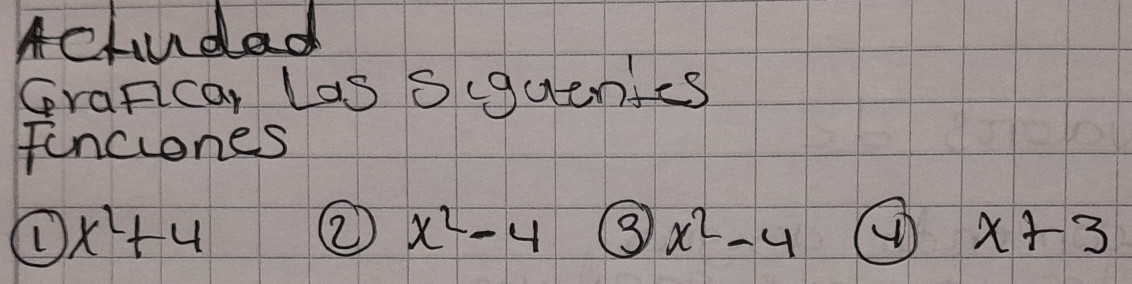 Actividad
Graficar Las Siguientes
Funciones
① x²+4 ② x²-4 ③ x²-4 ④ x+3